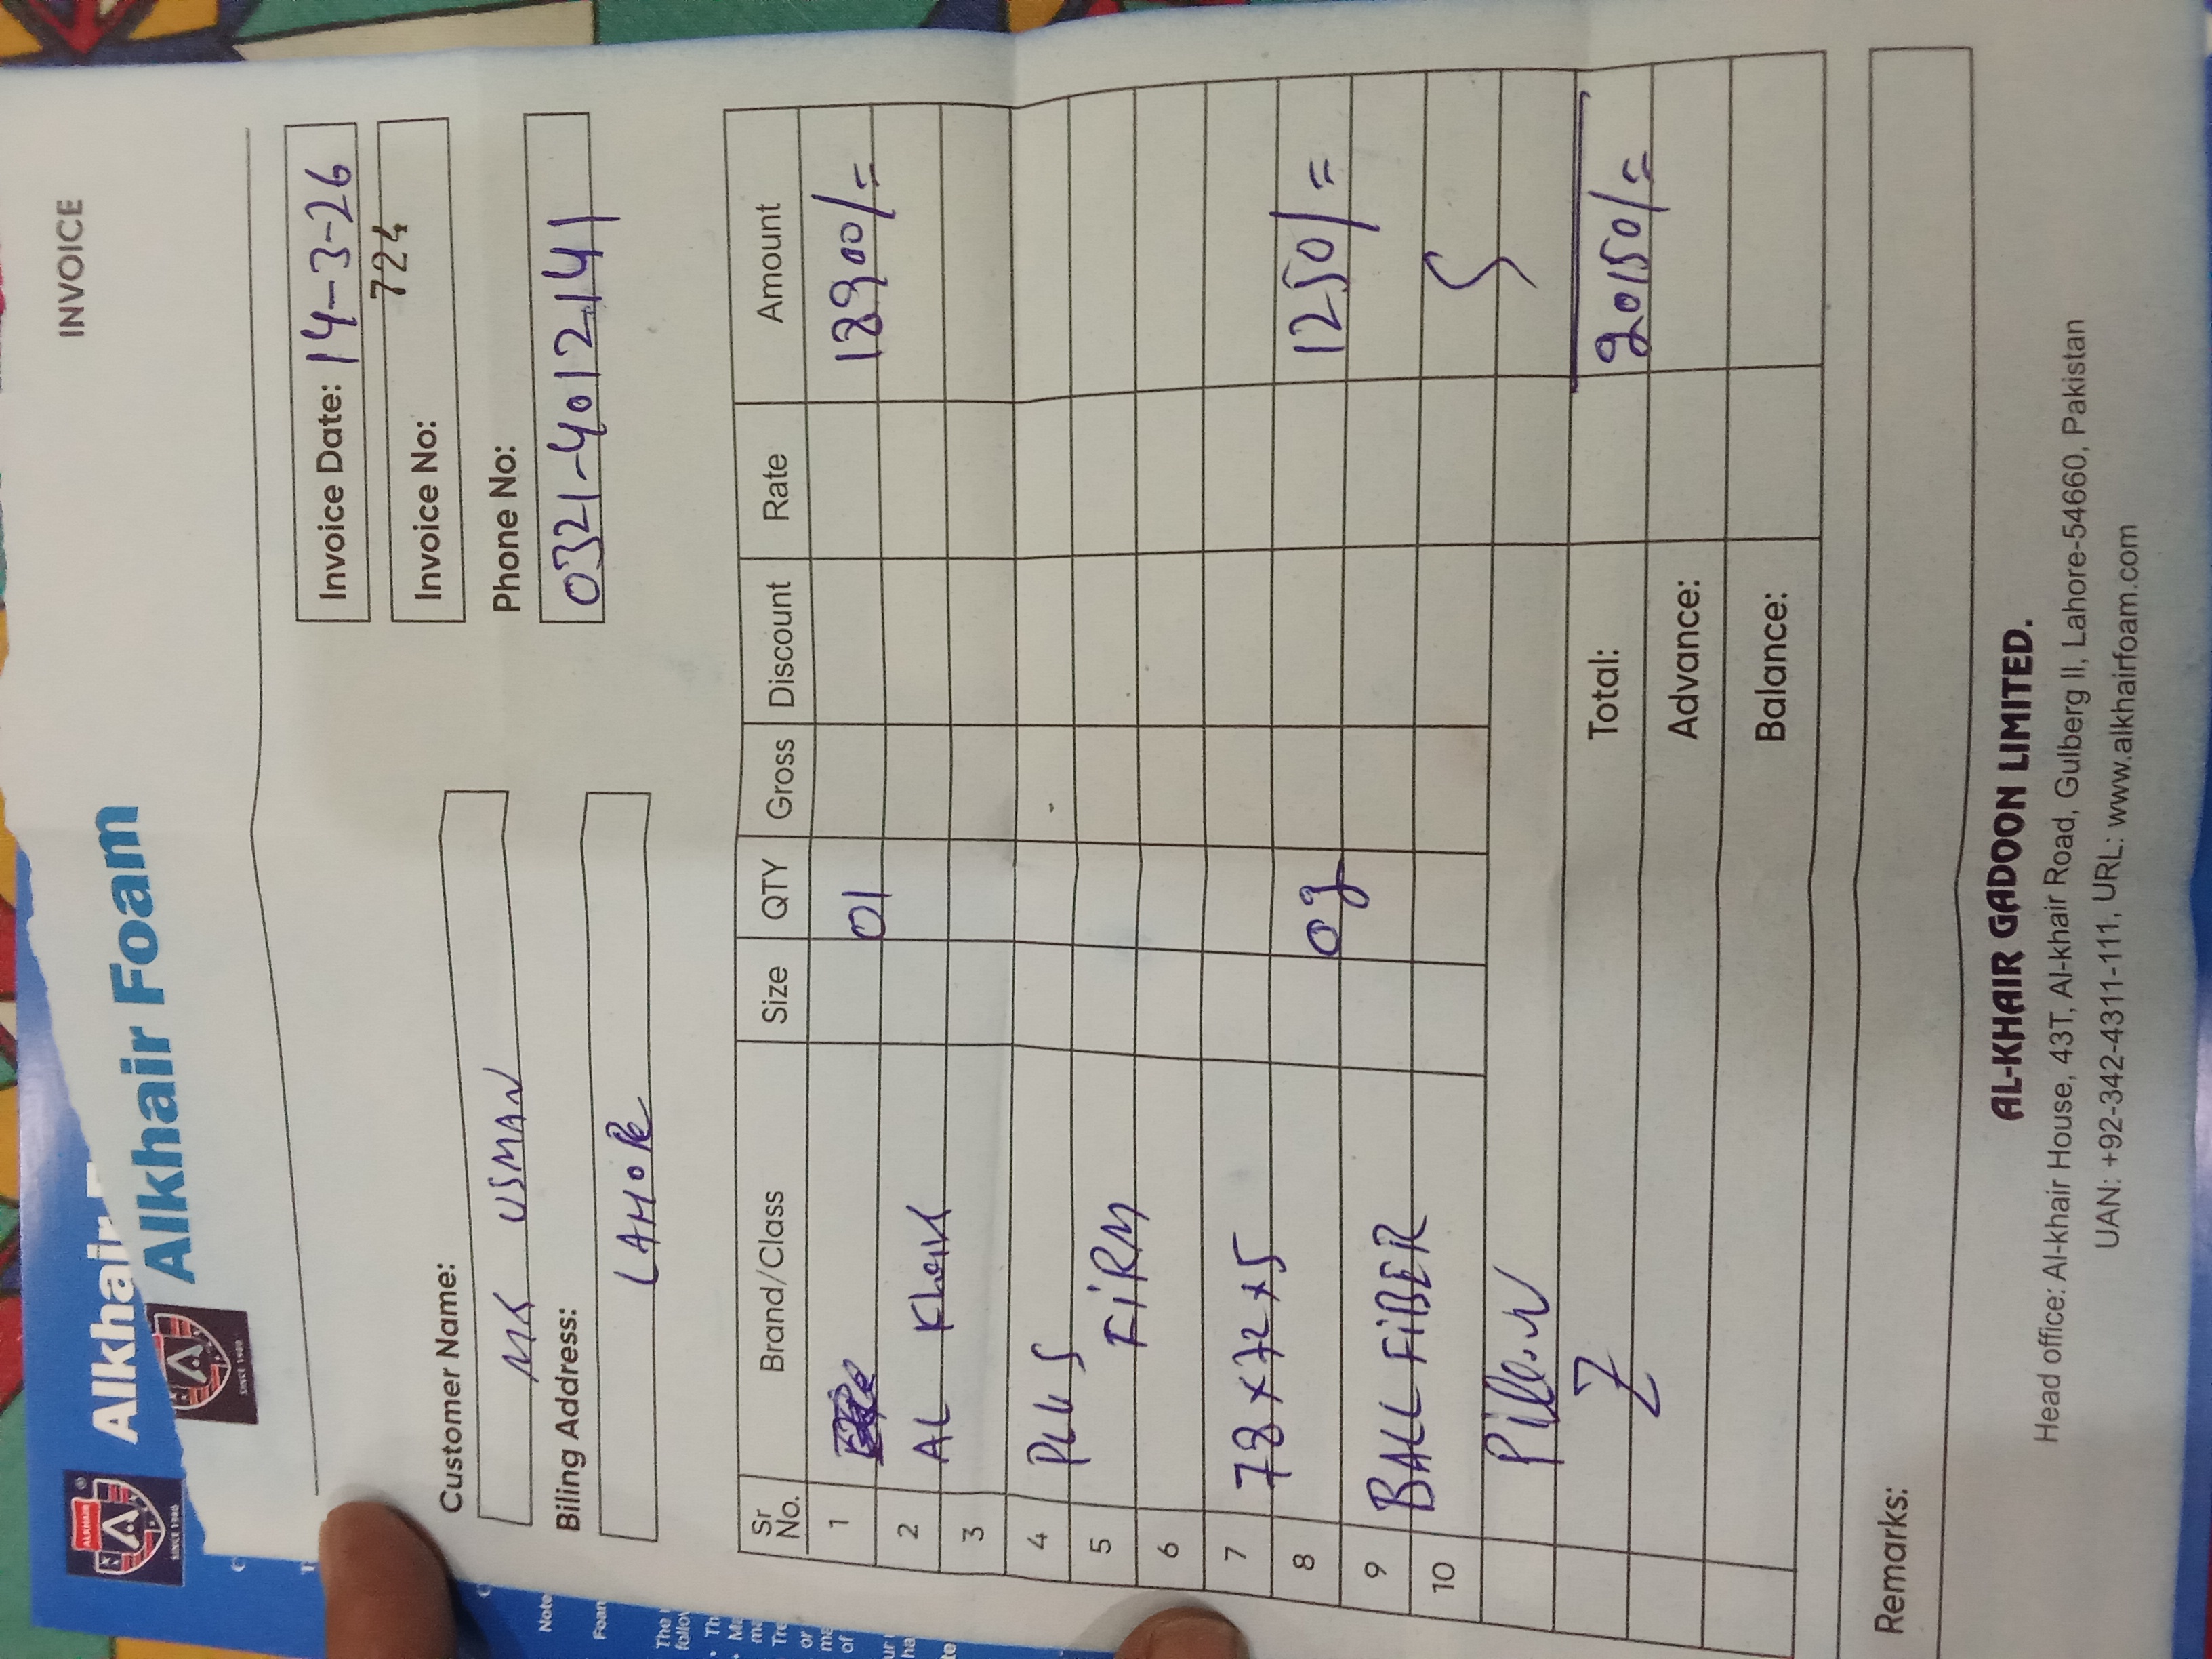 INVOICE
Alkhair
Alkhair Foam
ALKHAIR
SINCE 1980
SINCE 1980
Invoice Date: 14-3-26
Invoice No: 724
Customer Name:
USMAN
Phone No:
0321-4012141
Billing Address:
LAHORE
Sr No. Brand/Class Size QTY Gross Discount Rate Amount
1 01 18900/=
2 AL Khair
3
4 PLUS
5 FiRM
6
7 78x72x5
8 1250/=
9 BALL FiBER
10
Pillow
Total: 20150/=
Advance:
Balance:
Remarks:
AL-KHAIR GADOON LIMITED.
Head office: Al-khair House, 43T, Al-khair Road, Gulberg II, Lahore-54660, Pakistan
UAN: +92-342-4311-111, URL: www.alkhairfoam.com
Note
Foam
The